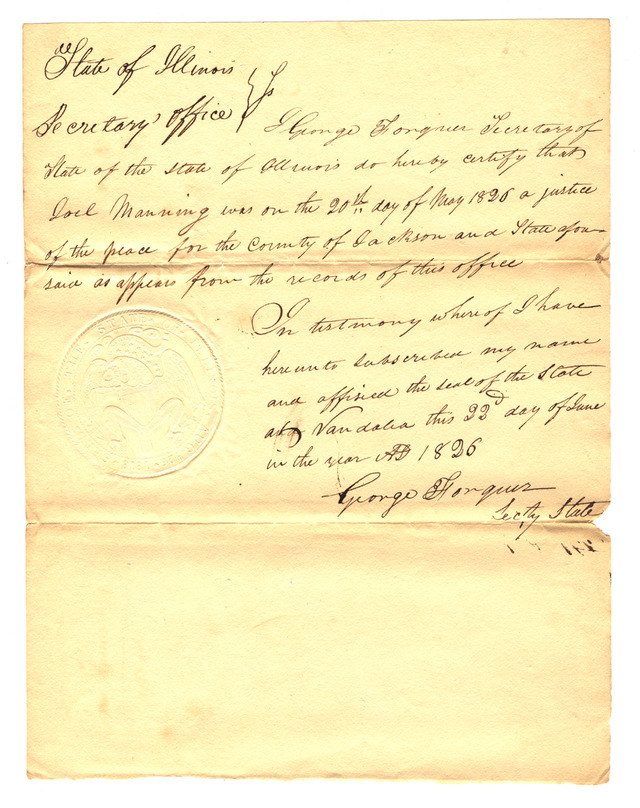 State of Illinois
Secretary' office } Ss
I George Forquer Secretary of
State of the state of Illinois do hereby certify that
Joel Manning was on the 20th day of May 1826 a justice
of the peace for the County of Jackson and State afore-
said as appears from the records of this office
In testimony whereof I have
hereunto subscribed my name
and affixed the seal of the State
at Vandalia this 22d day of June
in the year AD 1826
George Forquer
Secty State